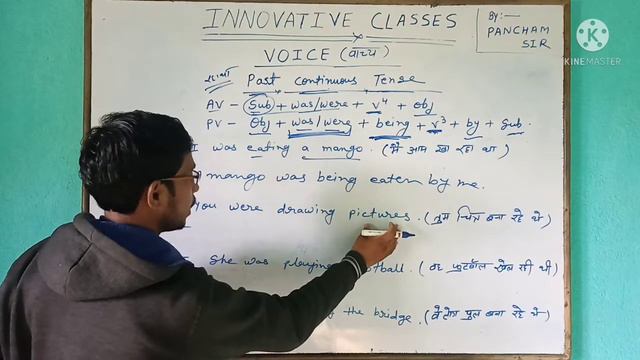 INNOVATIVE CLASSES
By:-
PANCHAM SIR
KINEMASTER
VOICE (वाच्य)
Past Continuous Tense
AV - Sub + was/were + v⁴ + obj
PV - Obj + was/were + being + v³ + by + sub.
I was eating a mango. (मैं आम खा रहा था)
mango was being eaten by me.
You were drawing pictures. (तुम चित्र बना रहे थे)
She was playing football. (वह फुटबॉल खेल रही थी)
the bridge. (वे लोग पुल बना रहे थे)